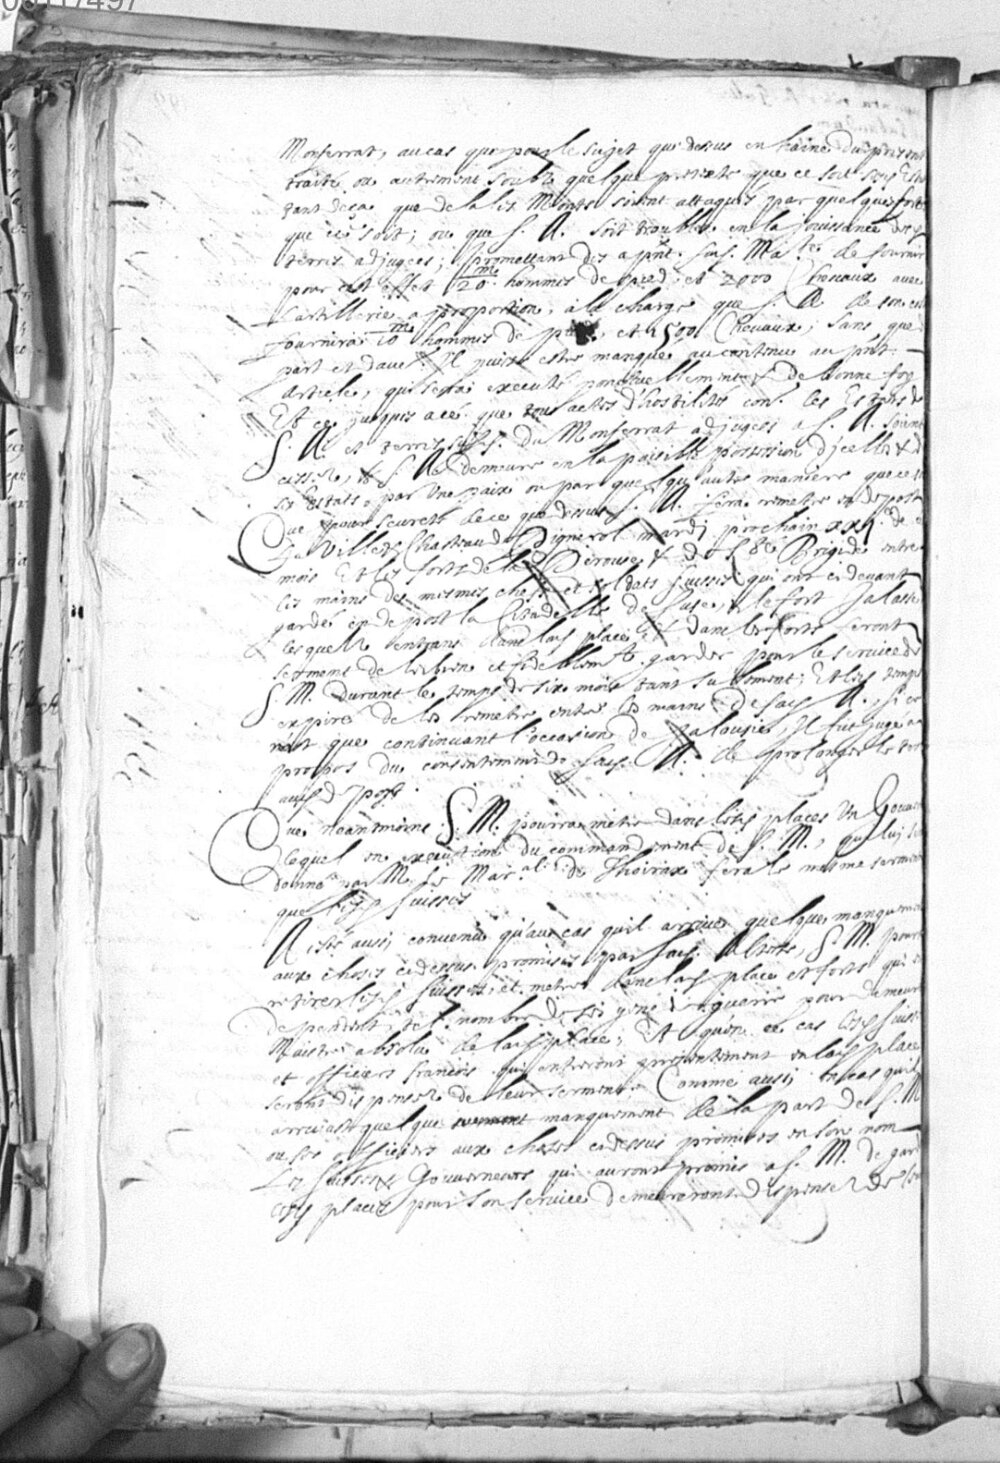 00117497
Monferrat, au cas que pour le sujet que dessus en haine du present
traité, ou autrement soubz quelque pretexte que ce soit ses Estatz
tant deça que dela les Monts soient attaquez par quelque force
que ce soit; ou que S. A. soit troublée en la jouissance desd.
terres adjugées; promettant dez a pnt. sad. Ma.té de fournir
pour cest effect 20m hommes de pied, et 2000 Chevaux avec
l'artillerie a proportion, a la charge que S. A. de son costé
fournira 10m hommes de pied, et 1500 Chevaux; sans que
part et d'autre Il puisse estre manqué au contenu au pnt.
Article, qui sera executé ponctuellement et de bonne foy
Et ce jusques a ce que tous actes d'hostilité con. les Estatz de
S. A. et terres susd. du Monferrat adjugées a S. A. soient
cessez, et S. A. demeure en la paisible possession d'icelles et de
ses Estats, par Une paix ou par quelqu'autre maniere que ce soit
Que pour seureté de ce que dessus S. A. fera remettre en depost
la Ville et Chasteau de Pignerol mardi prochain xxj.e de ce
mois Et les forts de la Perouse et de Ste Brigide entre
les mains des mesmes chefs et soldats Suisses qui ont cidevant
gardé en depost la Citadelle de Suse, et le fort Jalasse
lesquelz entrans dans lad. place et dans les forts feront
serment de les bien et fidellem.t garder pour le service de
S. M. durant le temps de six mois tant seulement; Et led. temps
expiré de les remettre entre les mains de sad. A. si ce
n'est que continuant l'occasion de Jalousie, Il fut jugé a
propos du consentement de sad. A. de prolonger le temps
dud. depost.
Que neantmoins S. M. pourra metre dans lesd. places Un Gouver
lequel en execution du commandement de S. M., qui luj sera
donné par M. le Mar.al de Thoirax fera le mesme serment
que lesd. Suisses
A esté aussi convenu qu'au cas qu'il arrive quelque manquement
aux choses cidessus promises par sad. Altesse, S. M. pourra
retirer lesd. Suisses, et metre dans lad. place et forts qui en
dependent tel nombre de ses gens de guerre pour demeurer
Maistre absolu de lad. place; Et qu'en ce cas lesd. Suisses
et officiers francois qui entreront presentement en lad. place
seront dispensez de leur serment. Comme aussi en cas qu'il
arrivast quelque manquement de la part de S. M.
ou ses officiers aux choses cidessus promises en son nom
Les Suisses et Gouverneurs qui auront promis a S. M. de garder
lesd. places pour son service demeureront dispensez de leur